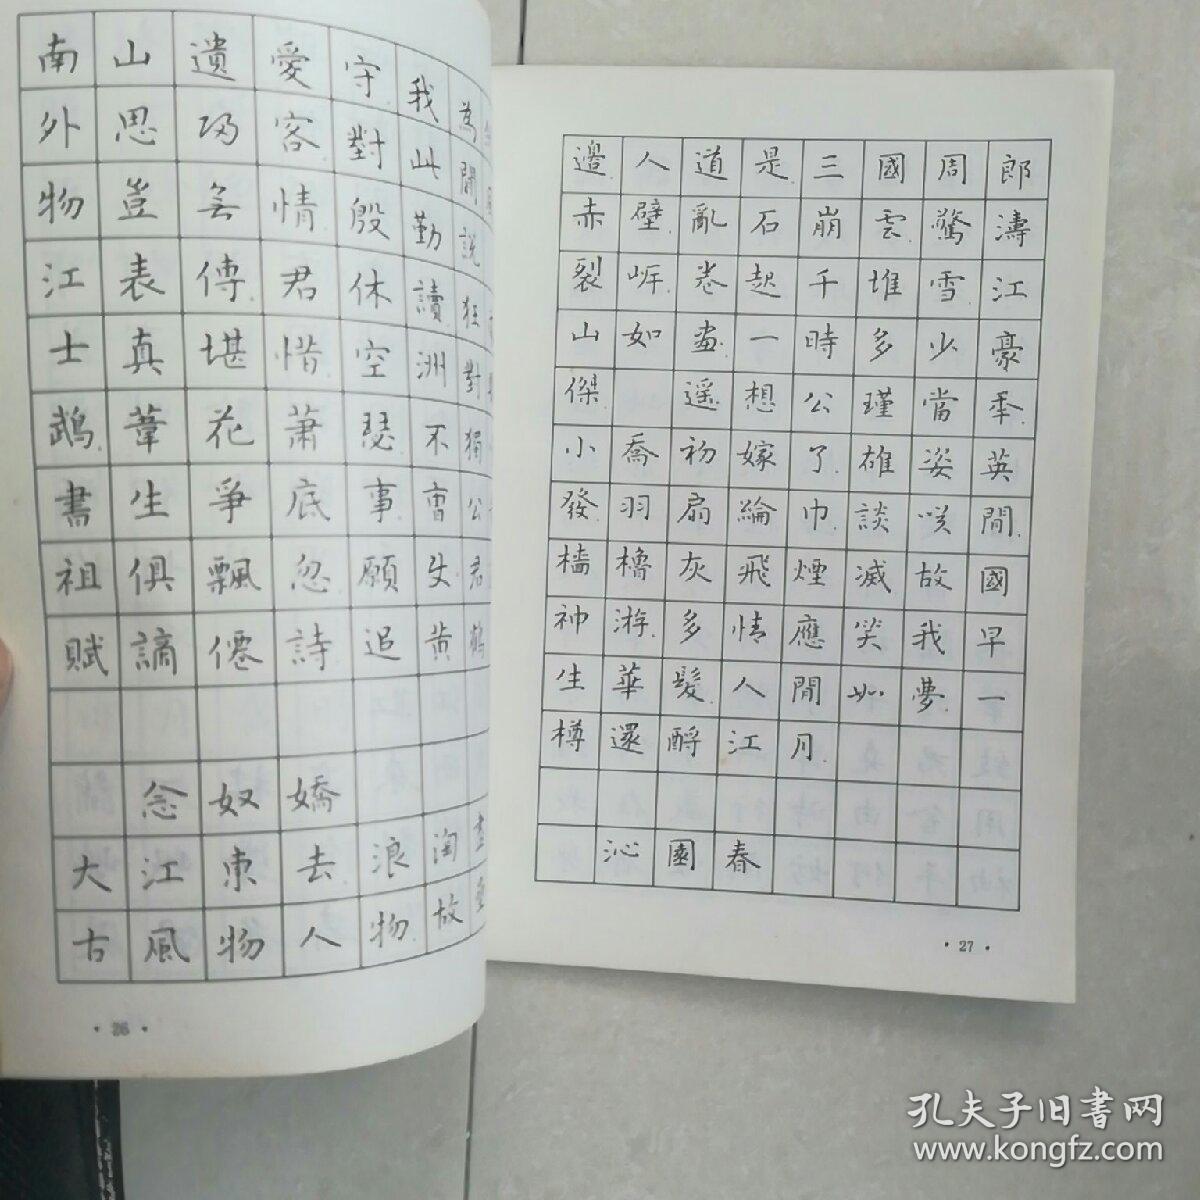 南山遺愛守我為
外思歸客對此間
物豈無情殷勤説
江表傳君休讀狂
士真堪惜空洲對
鵡葦花蕭瑟不獨
書生爭底事曹公
祖俱飄忽願使君
賦謫僊詩追黄鶴
念奴嬌
大江東去浪淘盡
古風物人物故壘
· 26 ·
邊人道是三國周郎
赤壁亂石崩雲驚濤
裂岸卷起千堆雪江
山如畫一時多少豪
傑 遥想公瑾當年
小喬初嫁了雄姿英
發羽扇綸巾談笑間
檣櫓灰飛煙滅故國
神游多情應笑我早
生華髮人間如夢一
樽還酹江月
沁園春
· 27 ·
孔夫子旧書网
www.kongfz.com